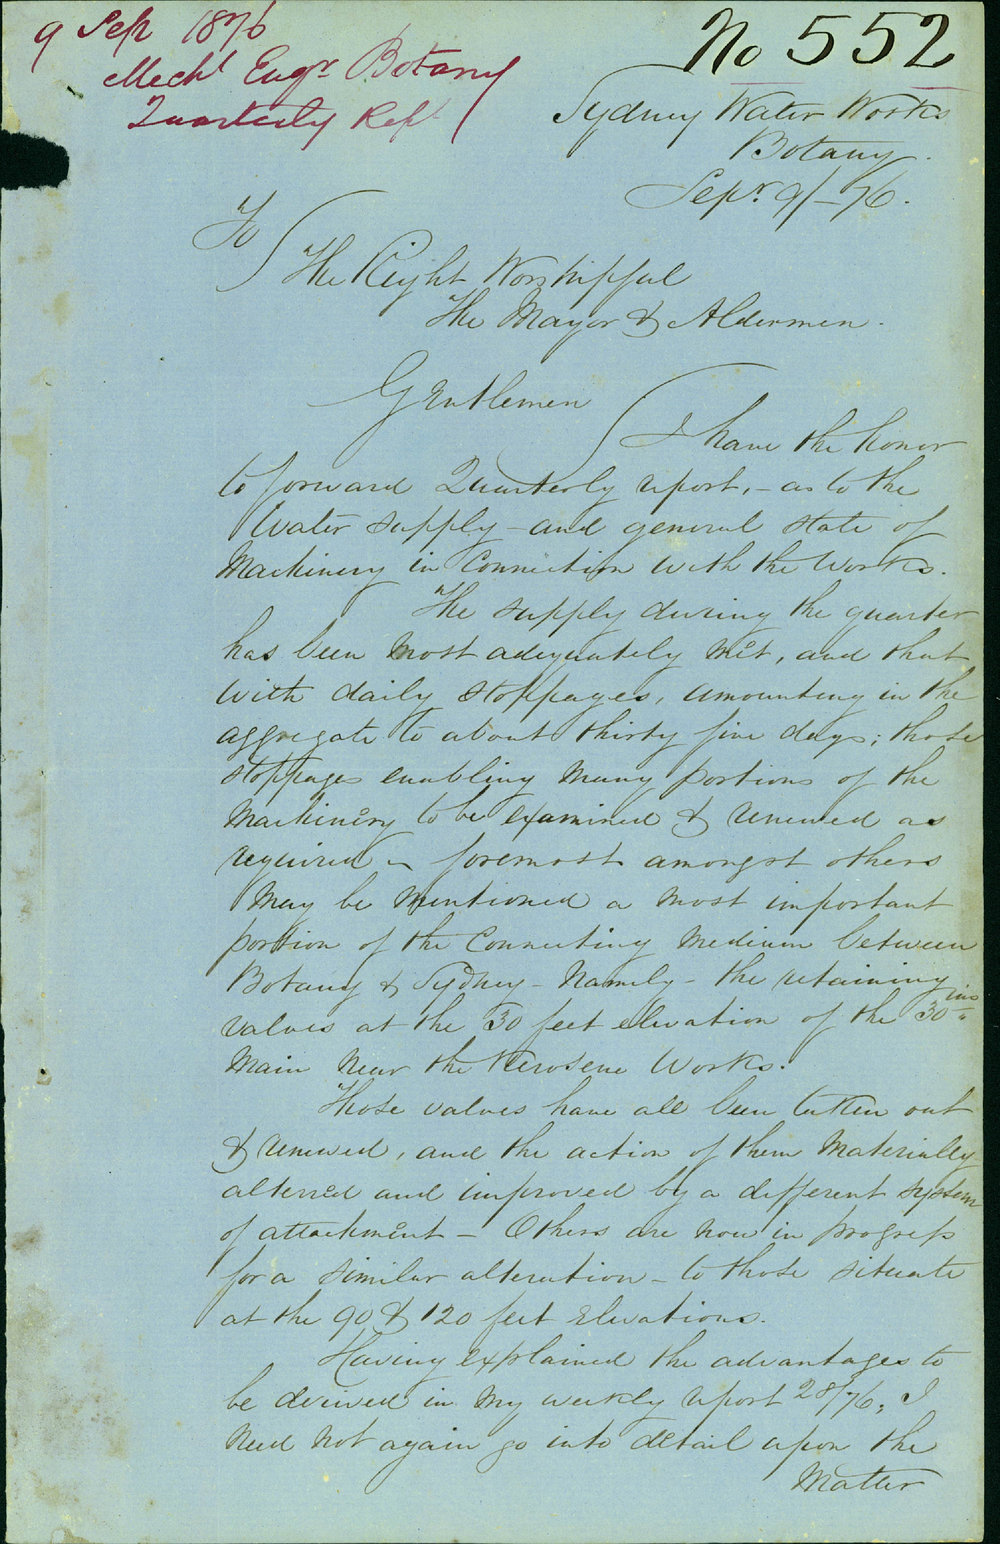 9 Sep 1876
Mechl Engr Botany
Quarterly Rept
No 552
Sydney Water Works
Botany.
Sepr 9/-76.
To
The Right Worshipful
The Mayor & Aldermen.
Gentlemen
I have the honor
to forward Quarterly report, - as to the
Water supply - and general state of
Machinery in Connection with the Works.
The supply during the quarter
has been most adequately met, and that
with daily stoppages, amounting in the
aggregate to about thirty five days; those
stoppages enabling many portions of the
Machinery to be examined & renewed as
required - foremost amongst others
May be Mentioned a most important
portion of the Connecting Medium between
Botany & Sydney - Namely - the retaining
valves at the 30 feet elevation of the 30 ins
Main Near the Kerosene Works.
Those valves have all been taken out
& renewed, and the action of them Materially
altered and improved by a different system
of attachment - Others are now in progress
for a similar alteration - to those situate
at the 90 & 120 feet Elevations.
Having explained the advantages to
be derived in my weekly report 28/76, I
Need Not again go into detail upon the
Matter